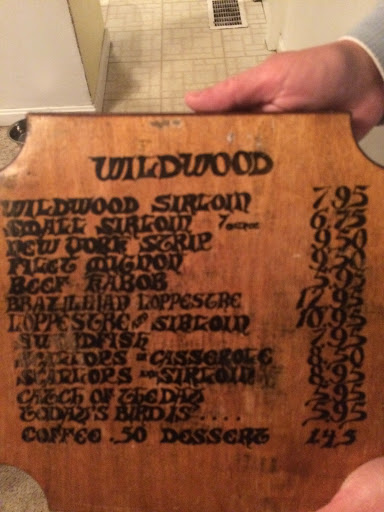 WILDWOOD
WILDWOOD SIRLOIN 7.95
SMALL SIRLOIN 7 OUNCE 6.75
NEW YORK STRIP 9.50
FILET MIGNON
BEEF KABOB
BRAZILLIAN LOPPESTRE 12.95
LOPPESTRE AND SIRLOIN 10.95
SWORDFISH
SCALLOPS IN CASSEROLE 8.50
SCALLOPS AND SIRLOIN 8.95
CATCH OF THE DAY
TODAY'S BIRD IS .... 5.95
COFFEE .50 DESSERT